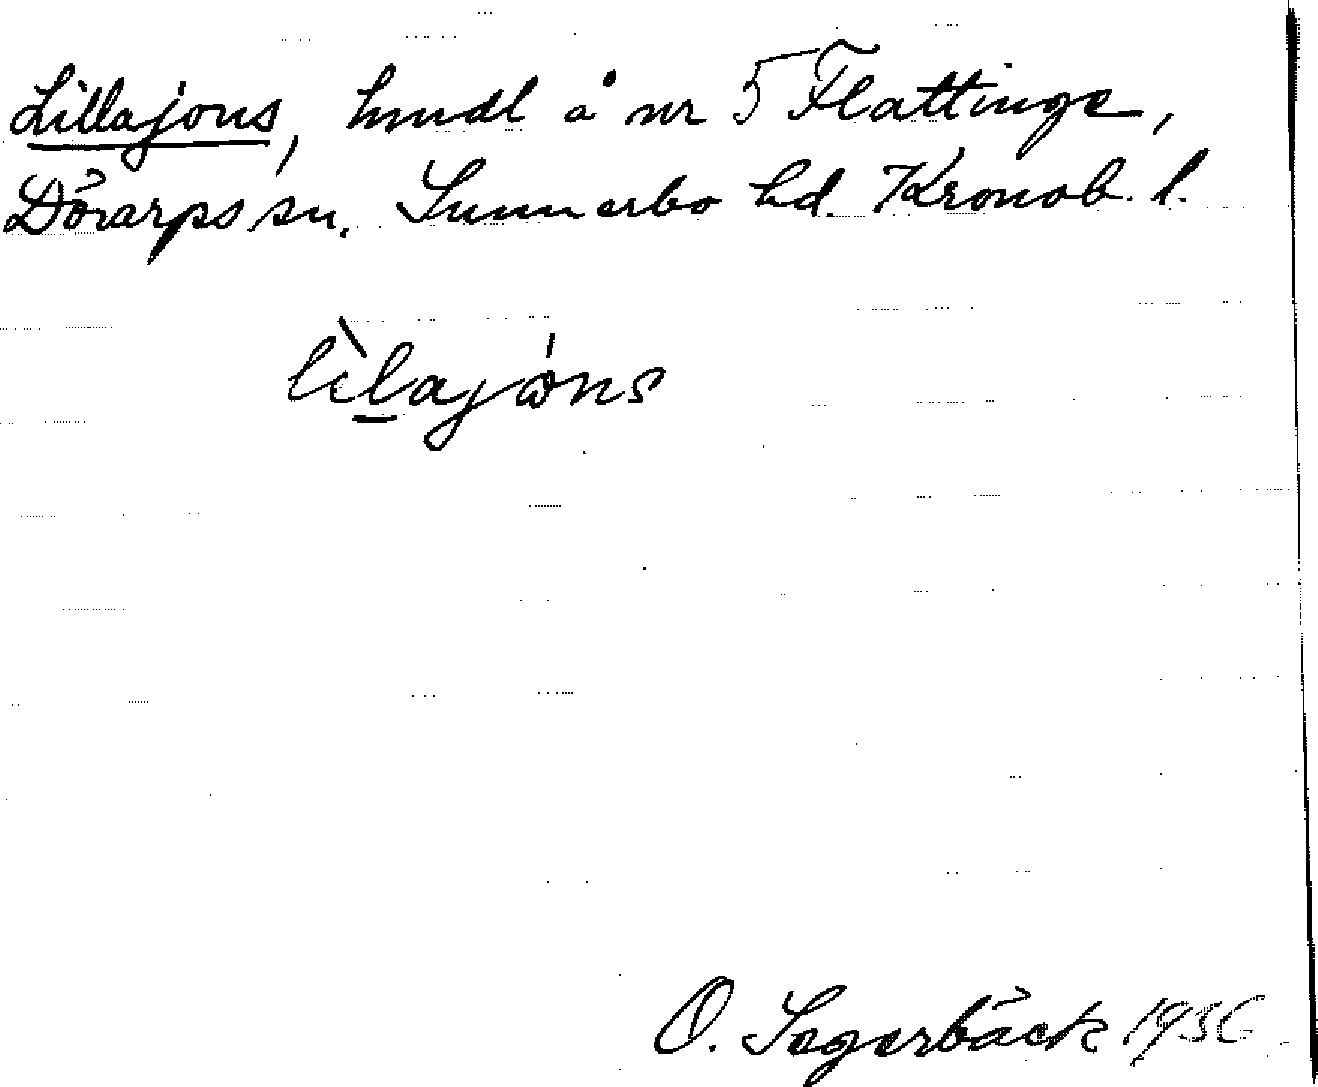 Lillajons, hmdl å nr 5 Flattinge,
Dörarps sn. Sunnerbo hd. Kronob. l.
lìlajóns
O. Sagerbäck 1936